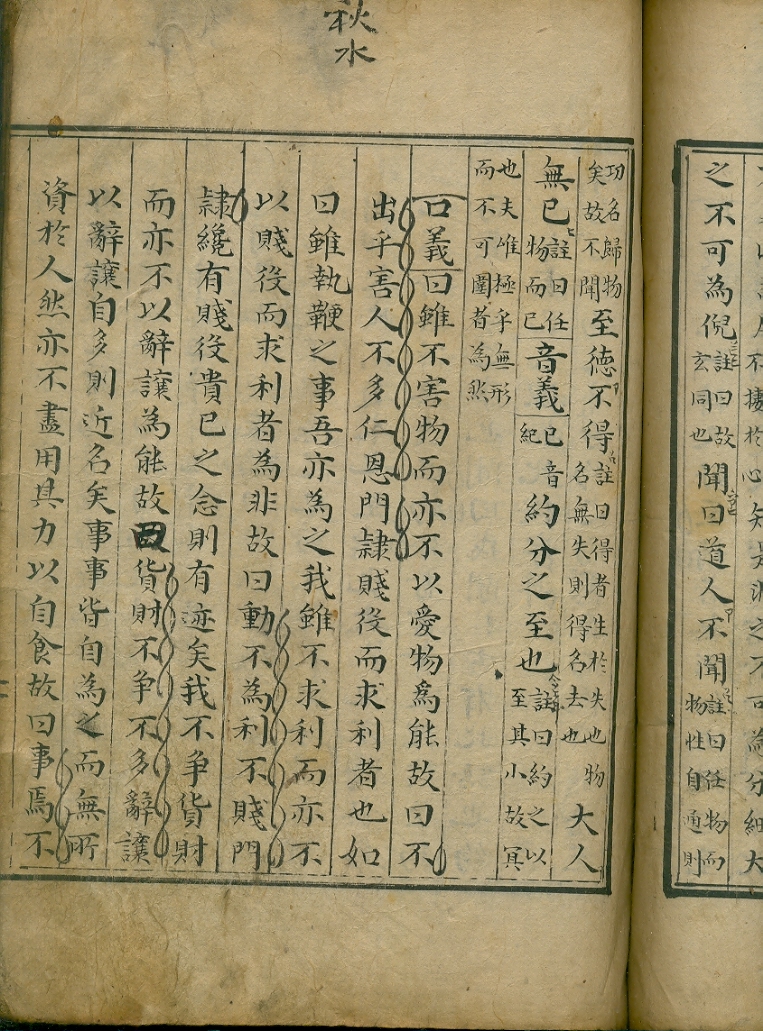 不棲於心知是非之不可為分細大
之不可為倪註曰故玄同也聞曰道人不聞註曰任物而物性自通則
秋水
功名歸物矣故不聞至德不得註曰得者生於失也物名無失則得名去也大人
無已註曰任物而已音義已音紀約分之至也註曰約之以至其小故冥
也夫唯極乎無形而不可圍者為然
口義曰雖不害物而亦不以愛物為能故曰不
出乎害人不多仁恩門隷賤役而求利者也如
曰雖執鞭之事吾亦為之我雖不求利而亦不
以賤役而求利者為非故曰動不為利不賤門
隷纔有賤役貴已之念則有迹矣我不争貨財
而亦不以辭讓為能故曰貨財不争不多辭讓
以辭讓自多則近名矣事事皆自為之而無所
資於人然亦不盡用其力以自食故曰事焉不